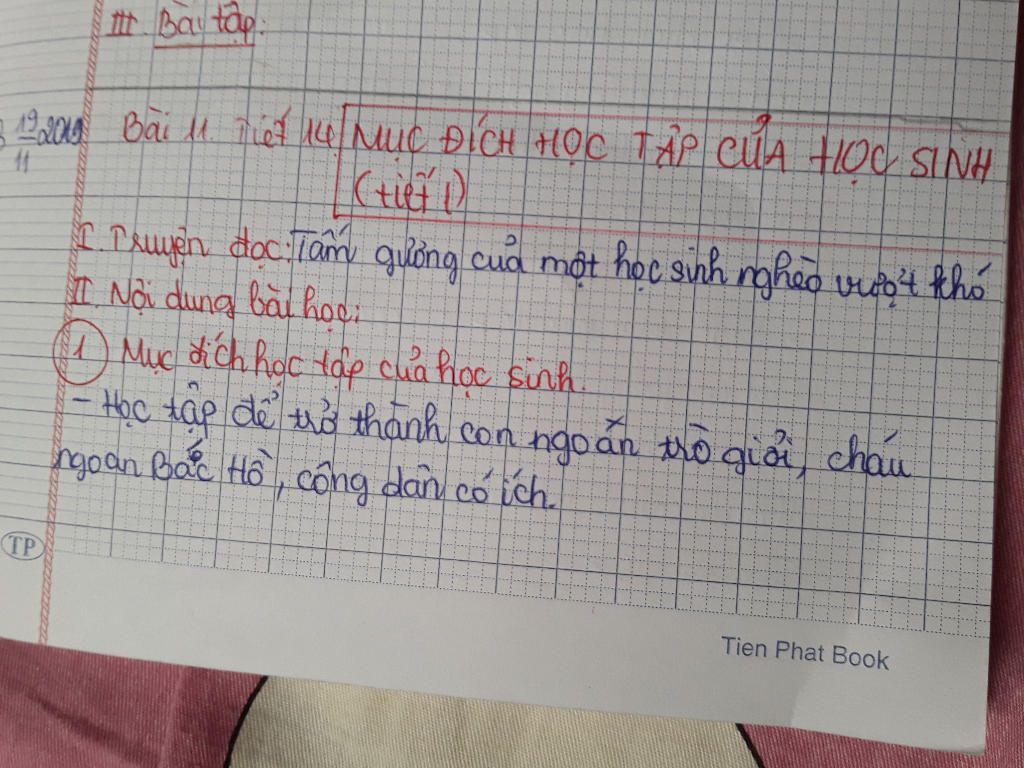 III. Bài tập:
19/11 2019
Bài 11. Tiết 14 MỤC ĐÍCH HỌC TẬP CỦA HỌC SINH
(tiết 1)
I. Truyện đọc: Tấm gương của một học sinh nghèo vượt khó
II. Nội dung bài học:
1 Mục đích học tập của học sinh.
- Học tập để trở thành con ngoắn trò giỏi, cháu
ngoan Bắc Hồ, công dân có ích.
TP
Tien Phat Book